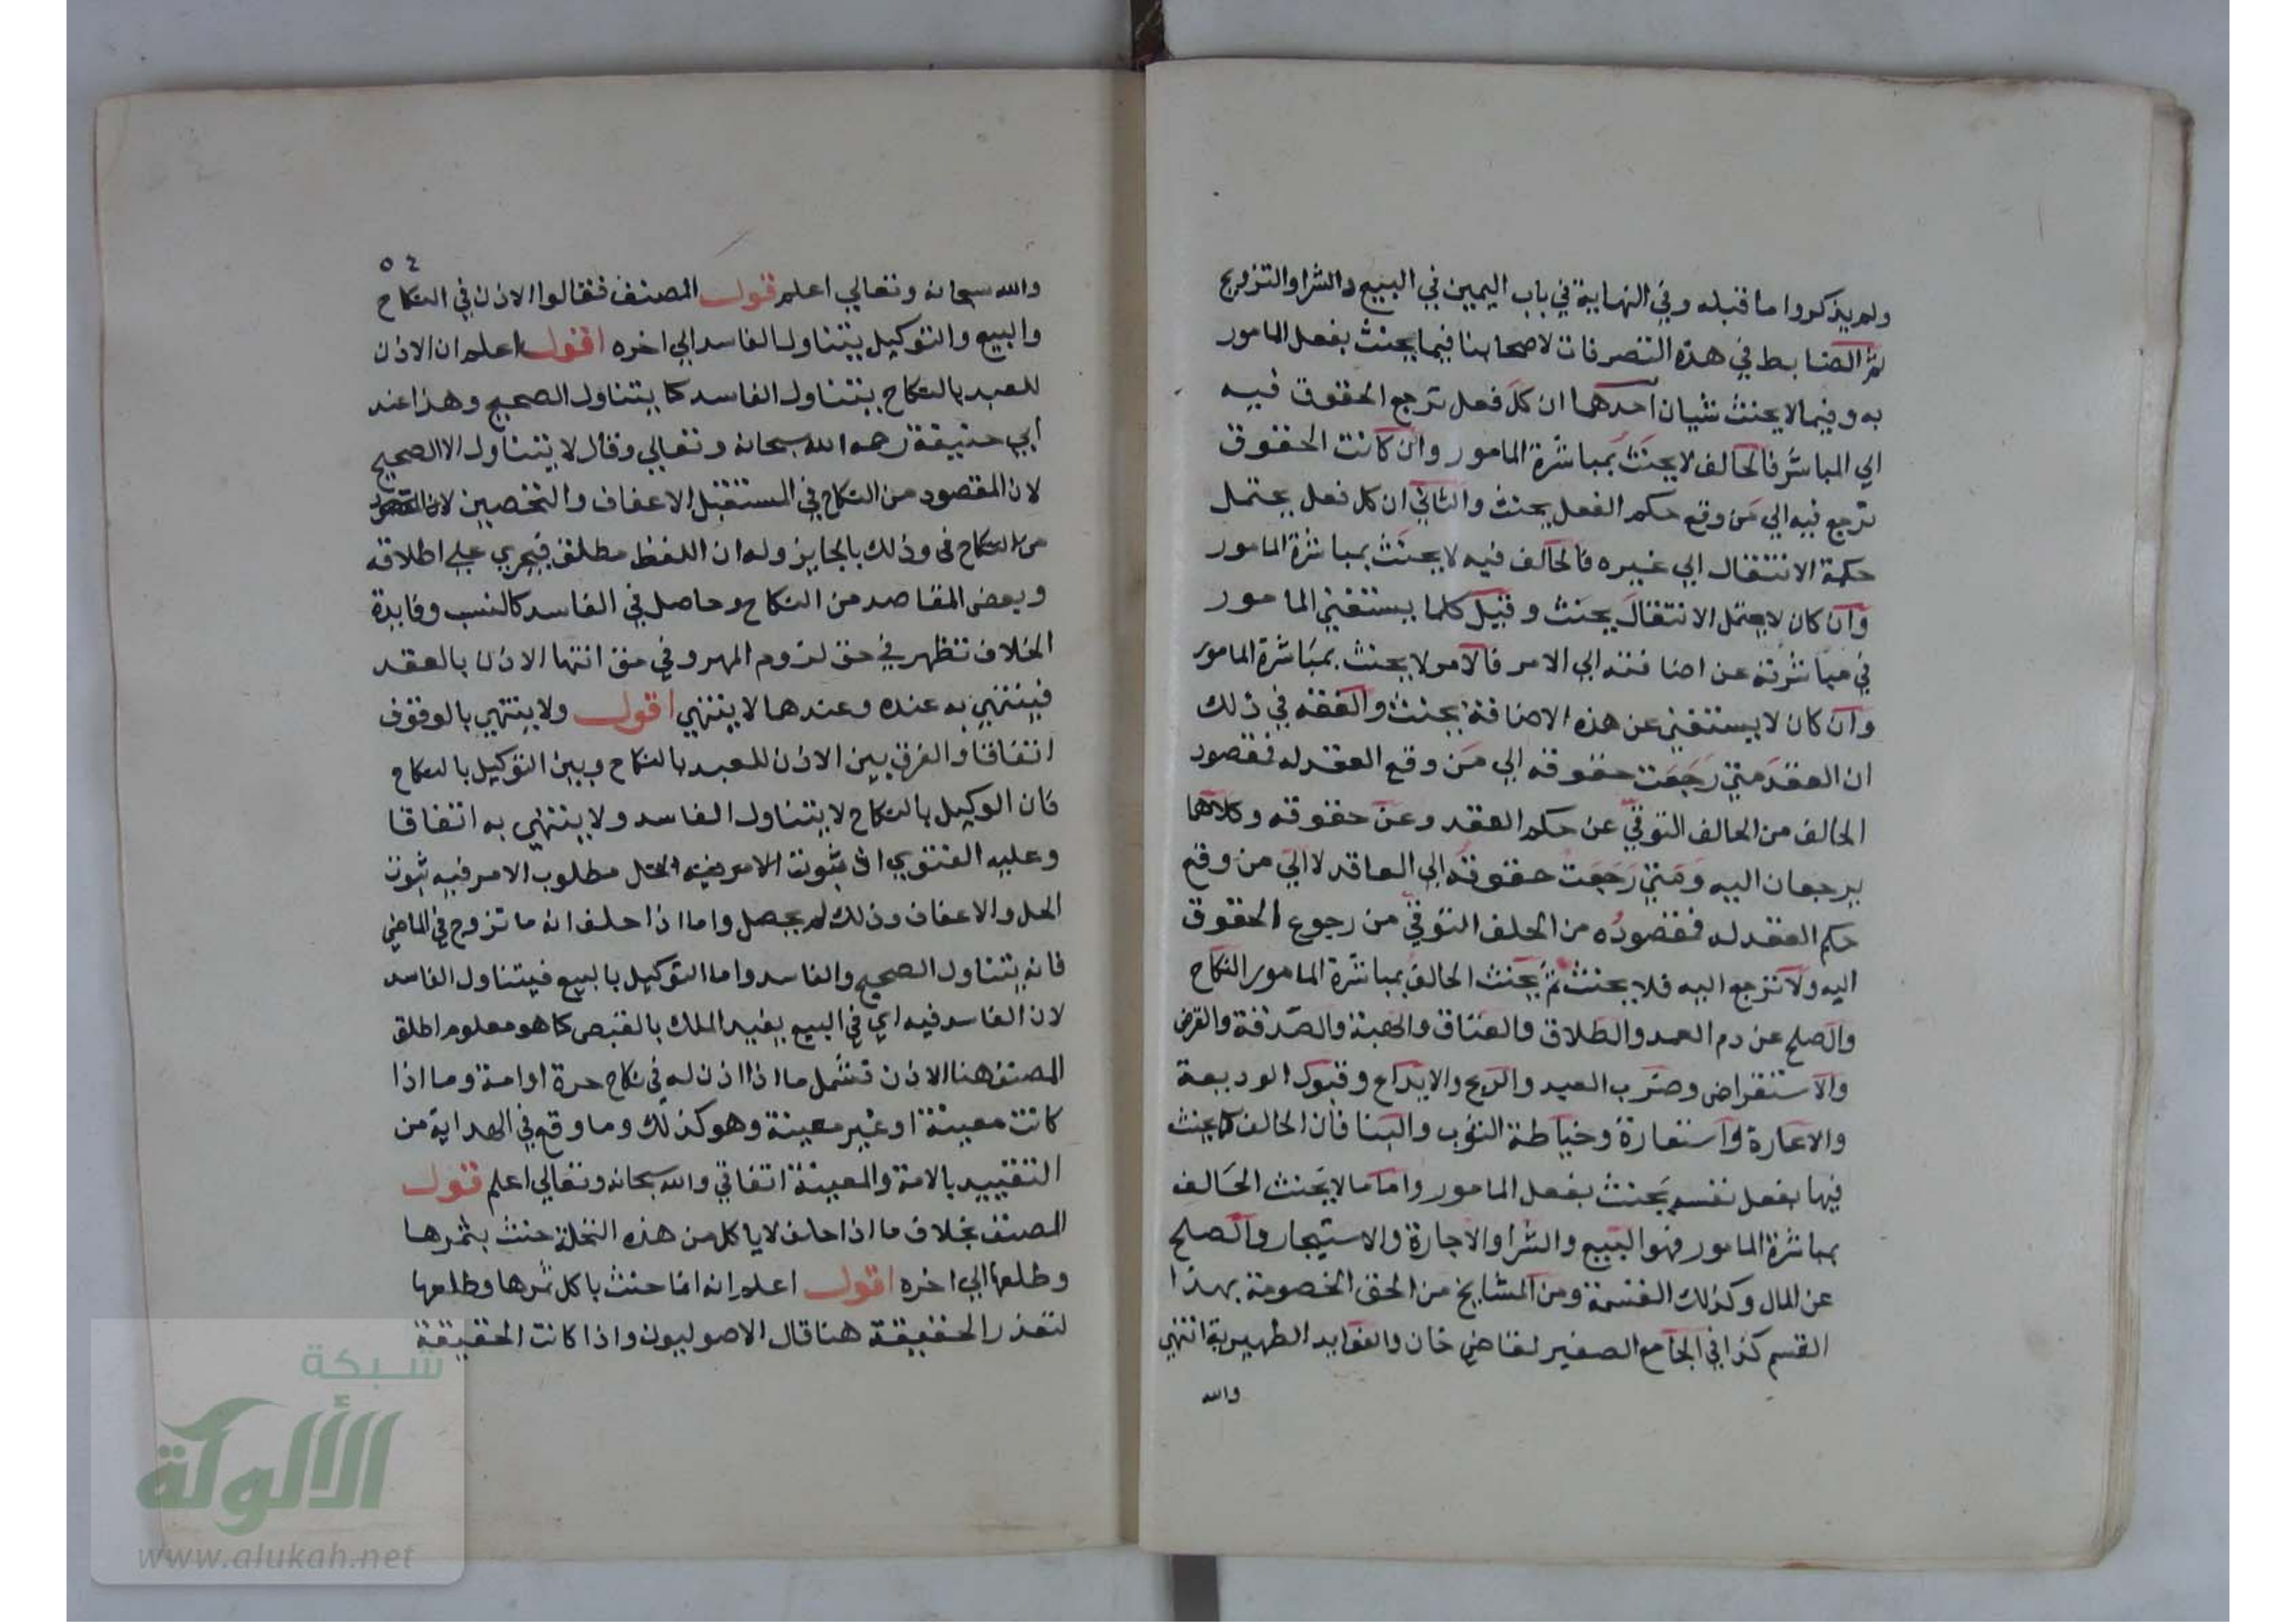 ولم يذكروا ما قبله وفي النهاية في باب اليمين في البيع والشرا والتزويج
ثم الضابط في هذه التصرفات لاصحابنا فيما يحنث بفعل المامور
به وفيما لا يحنث شيان احدهما ان كل فعل ترجع الحقوق فيه
الي المباشر فالحالف لا يحنث بمباشرة المامور وان كانت الحقوق
ترجع فيه الي من وقع حكم الفعل يحنث والثاني ان كل فعل يحتمل
حكمة الانتقال الي غيره فالحالف فيه لا يحنث بمباشرة المامور
وان كان لا يحتمل الانتقال يحنث وقيل كلما يستغني المامور
في مباشرته عن اضافته الي الامر فالامر لا يحنث بمباشرة المامور
وان كان لا يستغني عن هذه الاضافة يحنث والفقه في ذلك
ان العقد متي رجعت حقوقه الي من وقع العقد له فمقصود
الحالف من الحالف التوقي عن حكم العقد وعن حقوقه وكلاهما
يرجعان اليه ومتي رجعت حقوقه الي العاقد لا الي من وقع
حكم العقد له فمقصوده من الحلف التوقي من رجوع الحقوق
اليه ولا ترجع اليه فلا يحنث ثم يحنث الحالف بمباشرة المامور النكاح
والصلح عن دم العمد والطلاق والعتاق والهبة والصدقة والقرض
والاستقراض وضرب العبد والذبح والايداع وقبول الوديعة
والاعارة والاستعارة وخياطة الثوب والبنا فان الحالف كما يحنث
فيها بفعل نفسه يحنث بفعل المامور واما ما لا يحنث الحالف
بمباشرة المامور فهو البيع والشرا والاجارة والاستيجار والصلح
عن المال وكذلك القسمة ومن المشايخ من الحق الخصومة بهذا
القسم كذا في الجامع الصغير لقاضي خان والفوايد الظهيرية انتهي
والله
٥٤
والله سبحانه وتعالي اعلم قول المصنف فقالوا الاذن في النكاح
والبيع والتوكيل يتناول الفاسد الي اخره اقول اعلم ان الاذن
للعبد بالنكاح يتناول الفاسد كما يتناول الصحيح وهذا عند
ابي حنيفة رحمه الله سبحانه وتعالي وقال لا يتناول الا الصحيح
لان المقصود من النكاح في المستقبل الاعفاف والتحصين لان المقصود
من النكاح في وذلك بالجايز وله ان اللفظ مطلق فيجري علي اطلاقه
وبعض المقاصد من النكاح وحاصل في الفاسد كالنسب وفايدة
الخلاف تظهر في حق لزوم المهر وفي حق انتها الاذن بالعقد
فينتهي به عنده وعندهما لا ينتهي اقول ولا ينتهي بالوقوف
اتفاقا والفرق بين الاذن للعبد بالنكاح وبين التوكيل بالنكاح
فان الوكيل بالنكاح لا يتناول الفاسد ولا ينتهي به اتفاقا
وعليه الفتوي مطلوب الامر فيه ثبوت
الحل والاعفاف وذلك لم يحصل واما اذا حلف انه ما تزوج في الماضي
فانه يتناول الصحيح والفاسد واما التوكيل بالبيع فيتناول الفاسد
لان الفاسد فيه اي في البيع يفيد الملك بالقبض كما هو معلوم اطلق
المصنف هنا الاذن فشمل ما اذا اذن له في نكاح حرة او امة وما اذا
كانت معينة او غير معينة وهو كذلك وما وقع في الهداية من
التقييد بالامة والمعينة اتفاقي والله سبحانه وتعالي اعلم قول
المصنف بخلاف ما اذا حلف لا ياكل من هذه النخلة حنث بثمرها
وطلعها الي اخره اقول اعلم انه انما حنث باكل ثمرها وطلعها
لتعذر الحقيقة هنا قال الاصوليون واذا كانت الحقيقة
شبكة
الألوكة
www.alukah.net